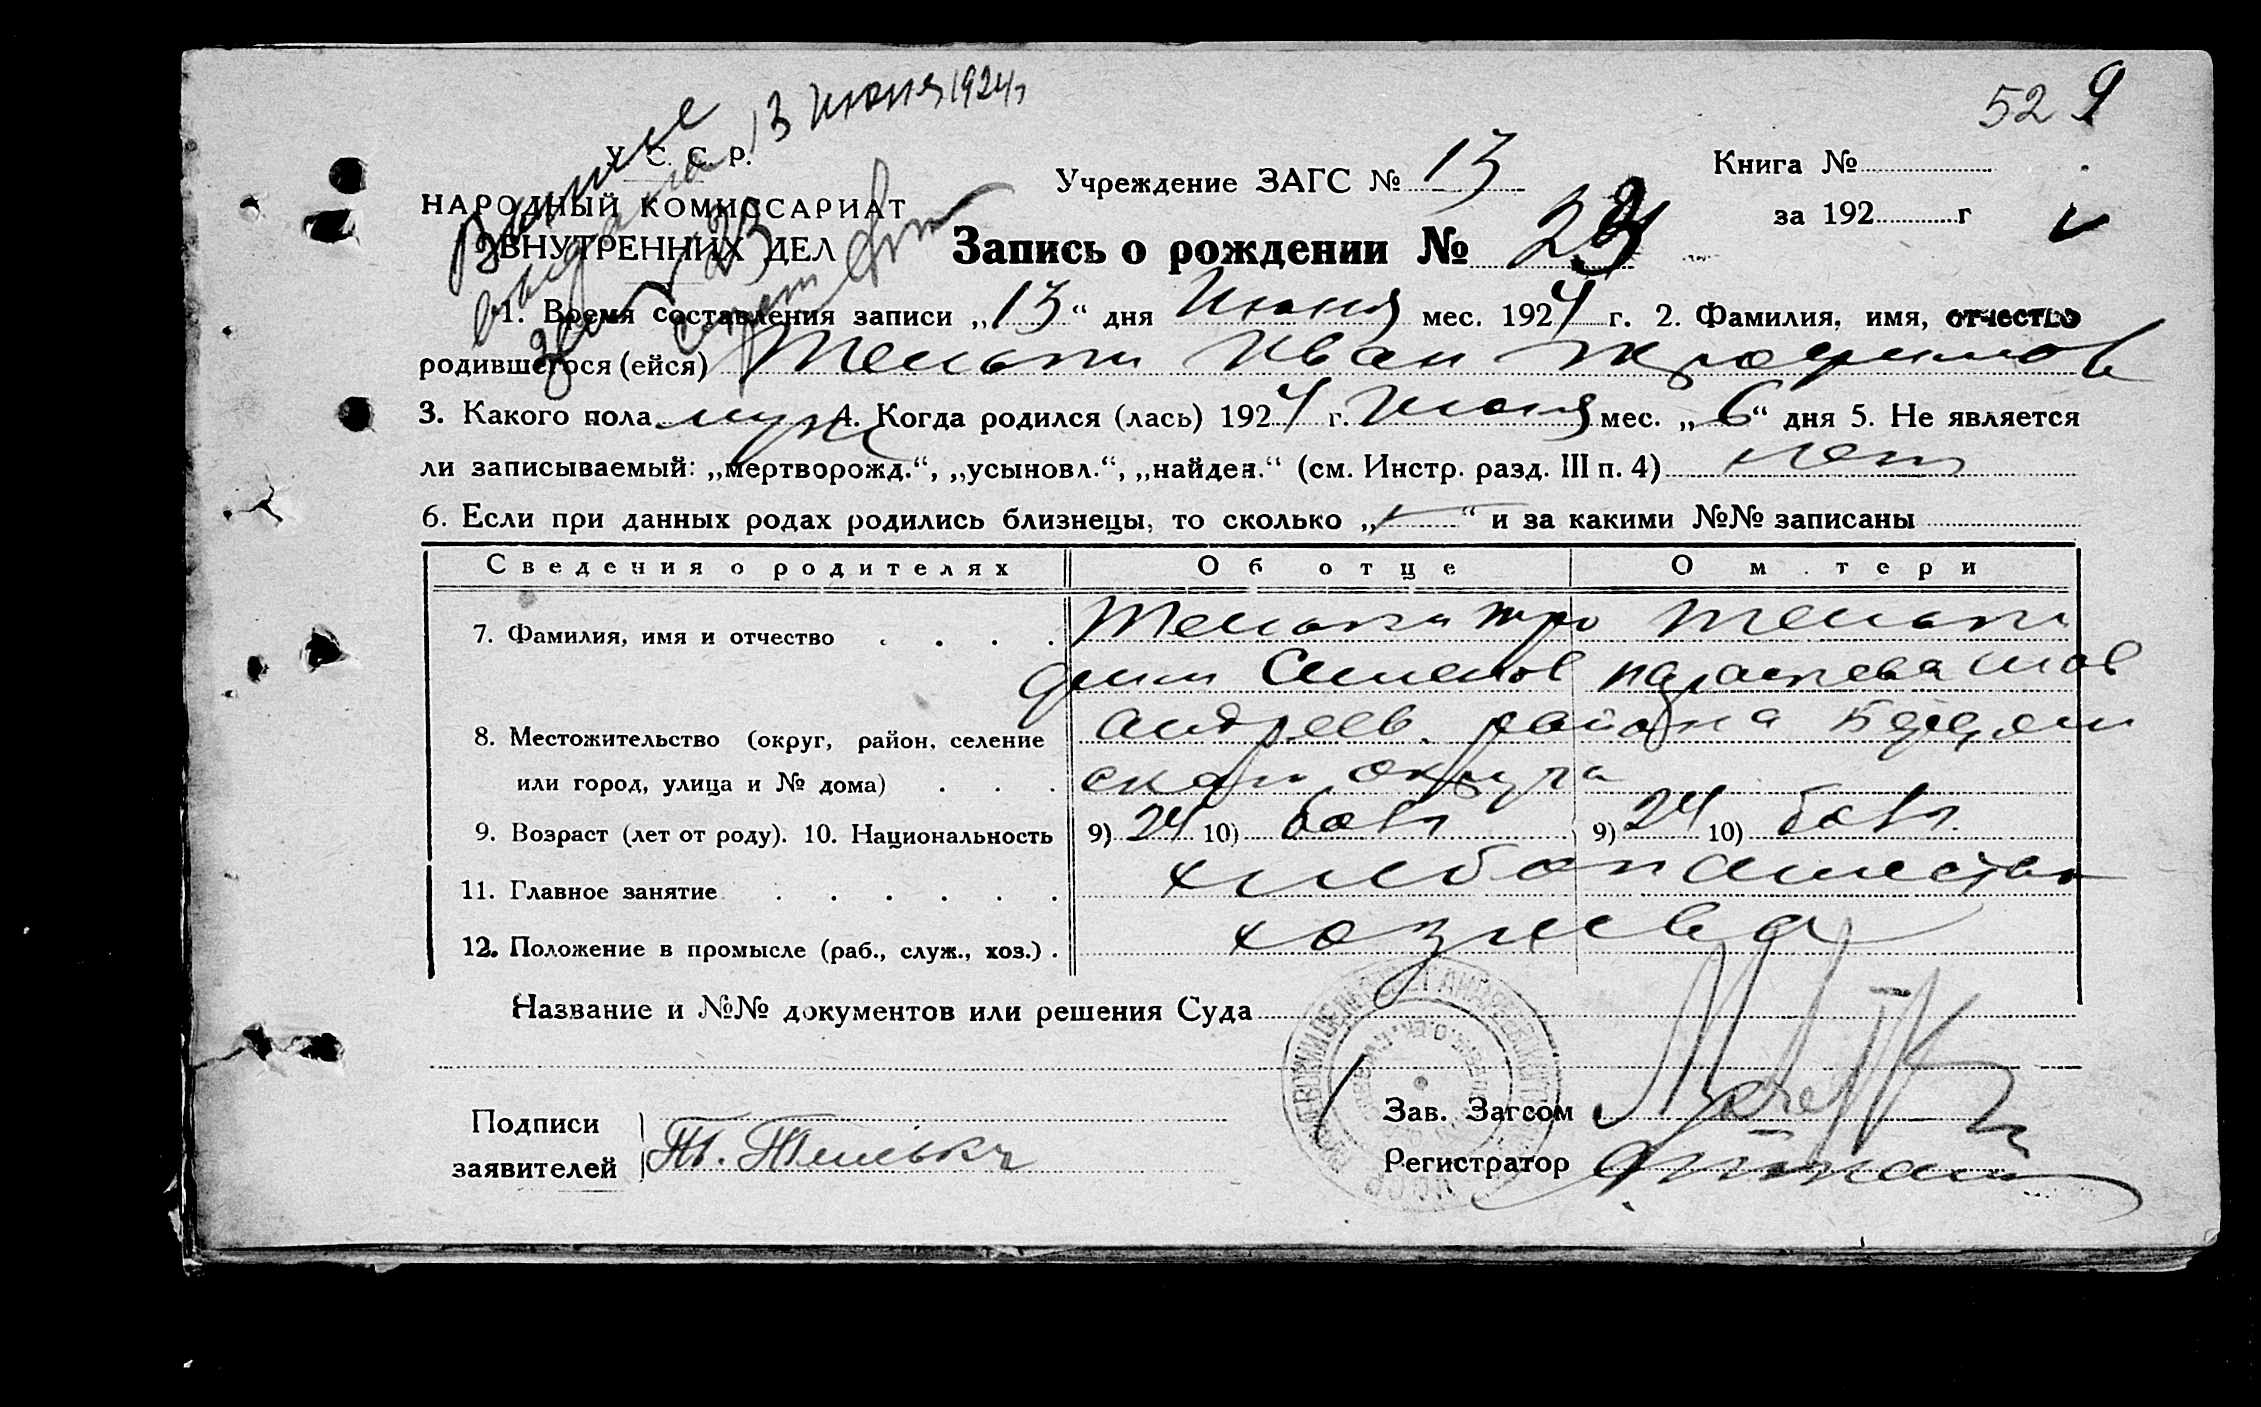 13 Июня 1924 г
52 9
У. С. С. Р.
НАРОДНЫЙ КОМИССАРИАТ
ВНУТРЕННИХ ДЕЛ
выдана
за № 23
Учреждение ЗАГС № 13
Книга №
за 192 г
Запись о рождении № 23
1. Время составления записи „13“ дня Июня мес. 1924 г. 2. Фамилия, имя, отчество
родившегося (ейся) Тельпи Иван Трофимов
3. Какого пола муж 4. Когда родился (лась) 1924 г. Июня мес. „6“ дня 5. Не является
ли записываемый: „мертворожд.“, „усыновл.“, „найден.“ (см. Инстр. разд. III п. 4) нет
6. Если при данных родах родились близнецы, то сколько „—“ и за какими №№ записаны
Сведения о родителях Об отце О м.тери
7. Фамилия, имя и отчество Тельпи Тро Тельпи
фим Семенов Параскева
8. Местожительство (округ, район, селение Андреев. района
или город, улица и № дома) ского округа
9. Возраст (лет от роду). 10. Национальность 9) 24 10) болг 9) 24 10) болг.
11. Главное занятие хлебопашество
12. Положение в промысле (раб., служ., хоз.) хозяева
Название и №№ документов или решения Суда
Подписи
заявителей
Зав. Загсом
Регистратор